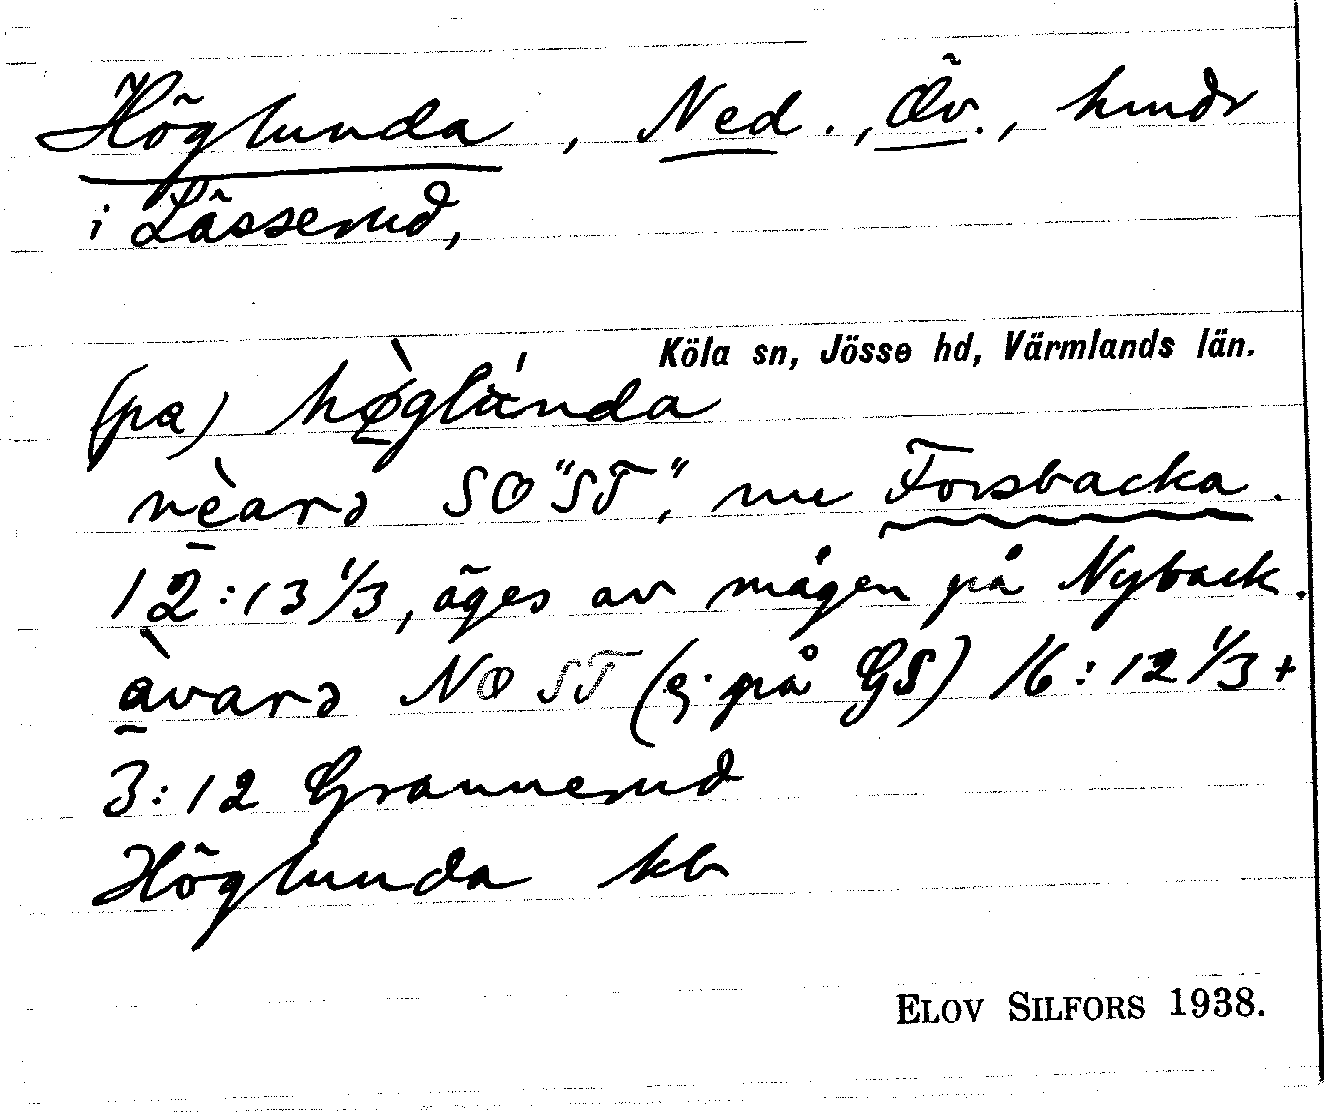 Höglunda, Ned., Öv., hmdr
i Lässerud,
Köla sn, Jösse hd, Värmlands län.
(pa) høglúnda
nèarə SO "ST", nu Forsbacka.
12:13 1/3, äges av mågen på Nyback.
àvarə NO ST (ej på GS) 16:12 1/3 +
3:12 Grannerud
Höglunda kb
ELOV SILFORS 1938.